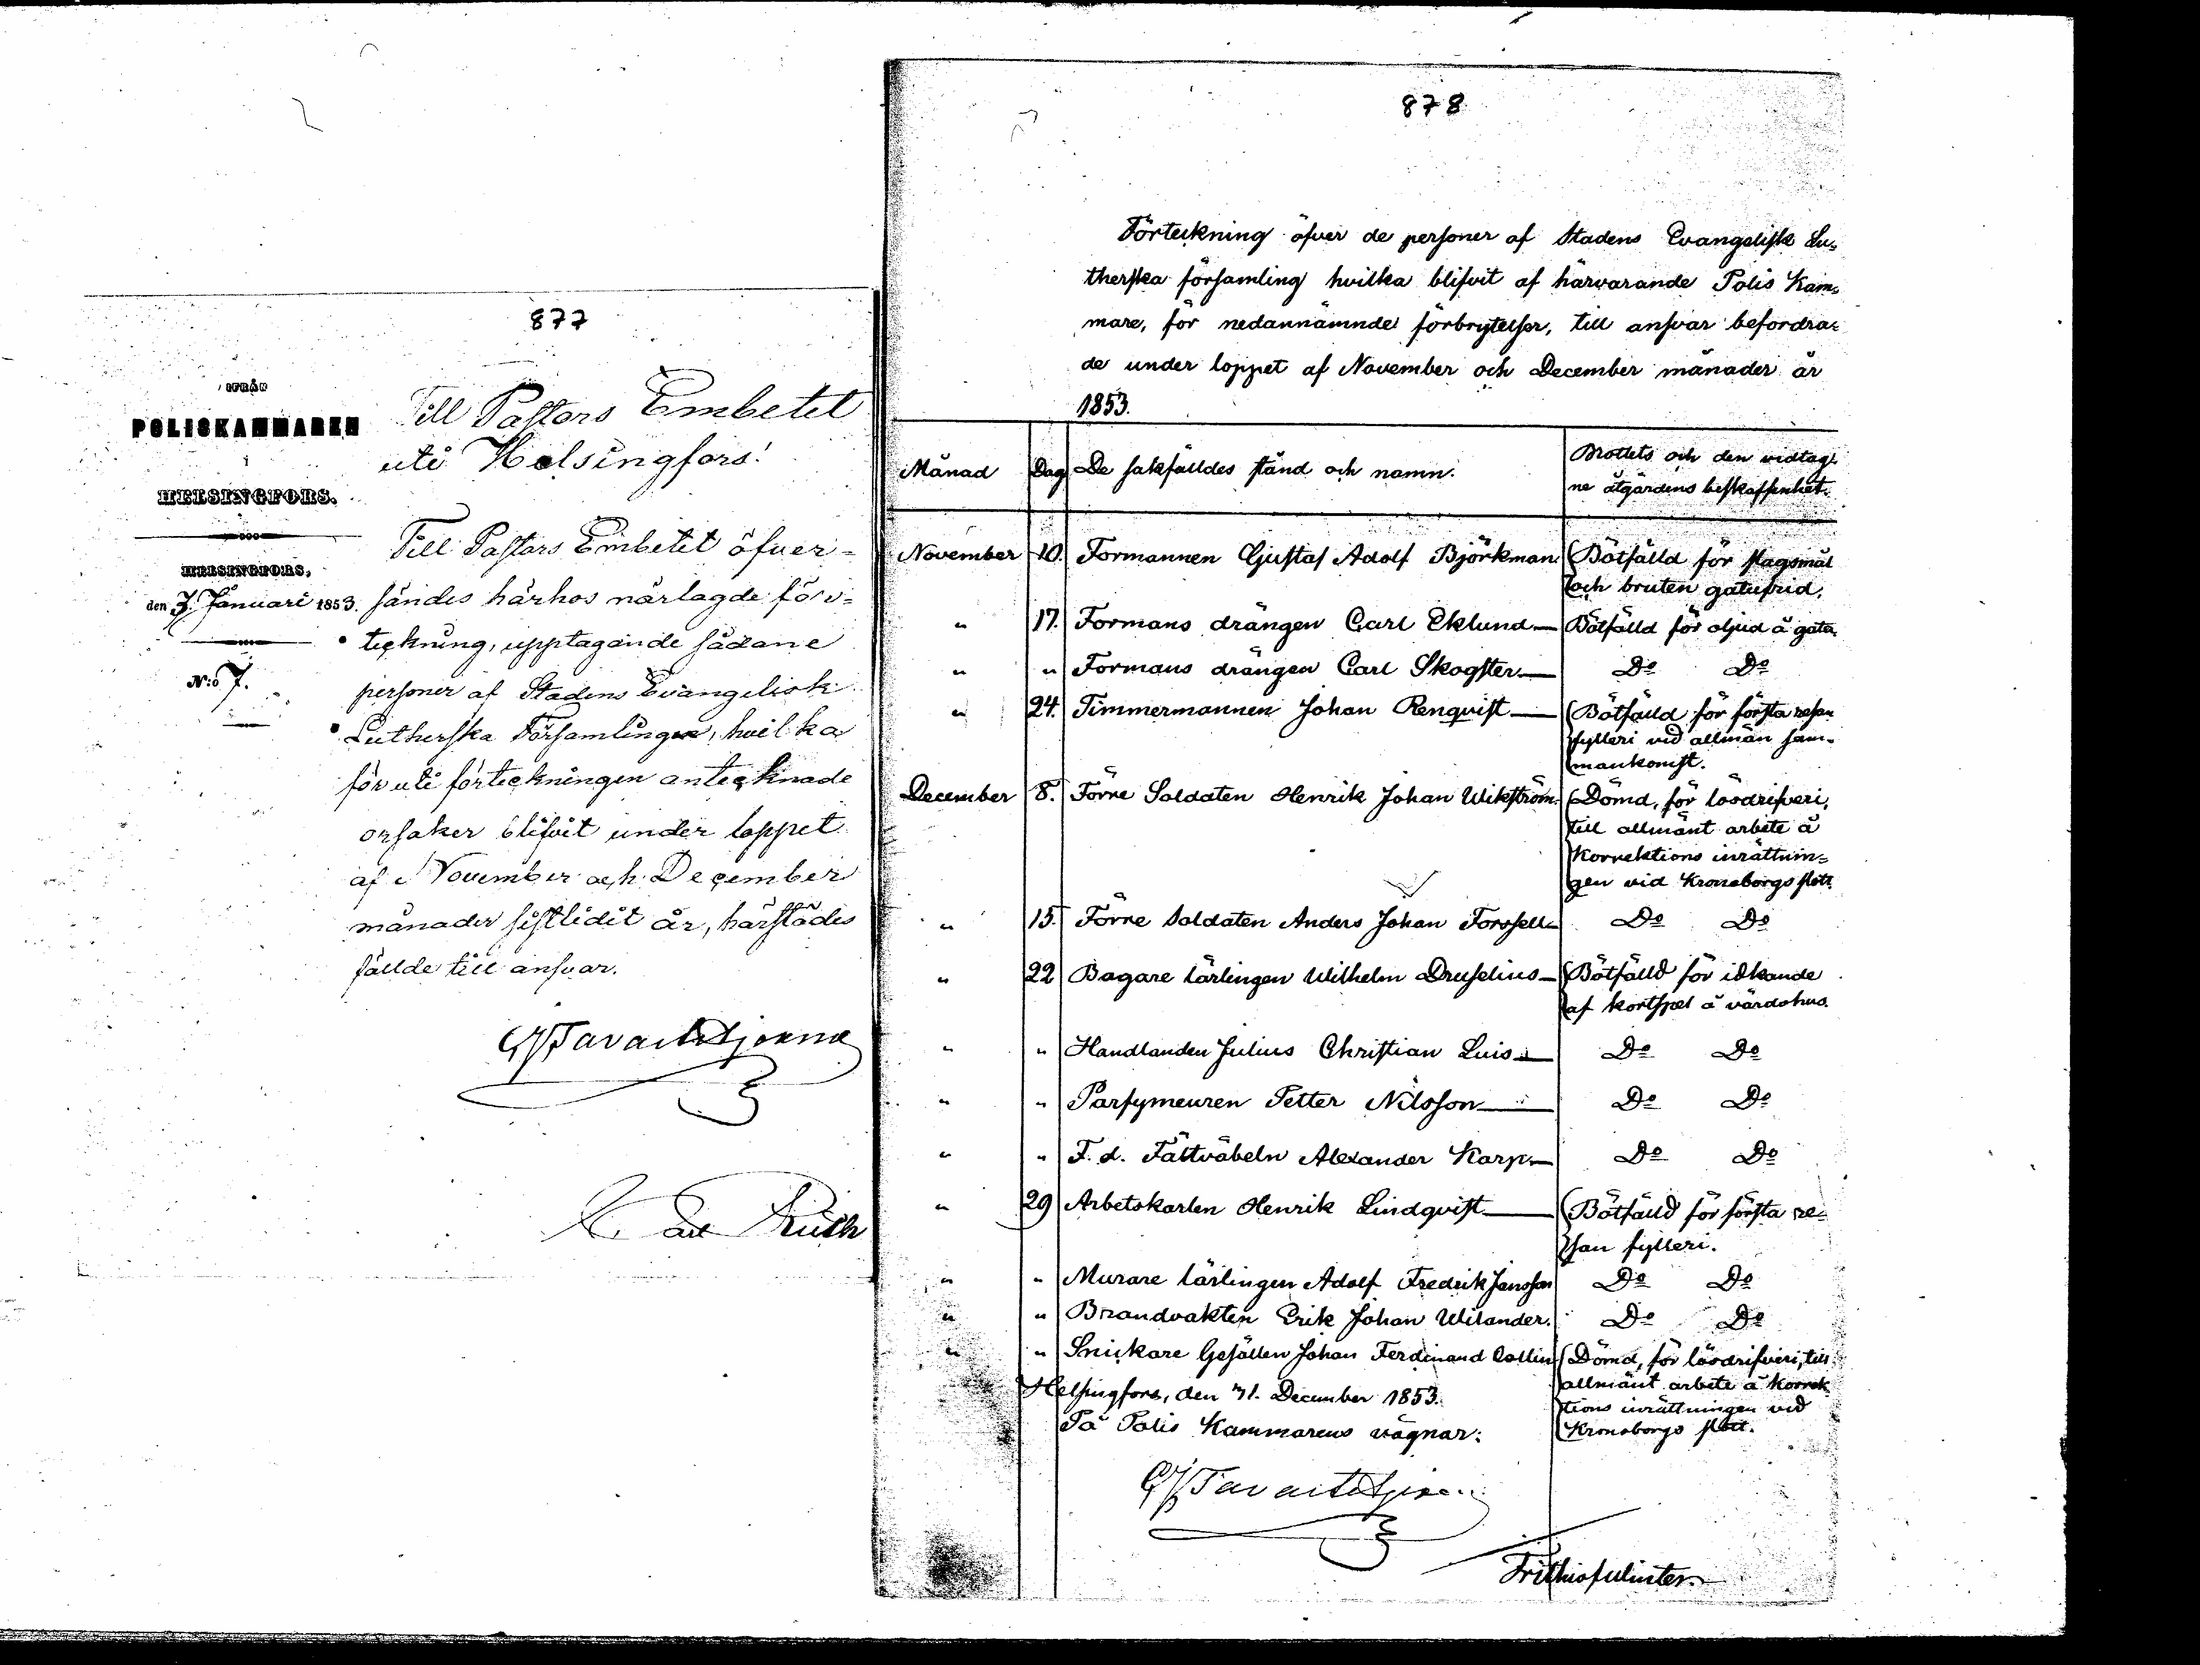 877
IFRÅN
POLISKAMMAREN
i
HELSINGFORS.
HELSINGFORS,
den 7. Januari 1853.
N:o 7.
Till Pastors Embetet
uti Helsingfors!
Till Pastors Embetet öfver-
sändes härhos närlagde för-
teckning, upptagande sådane
personer af Stadens Evangelisk
Lutherska Församlingen, hvilka
för uti förteckningen antecknade
orsaker blifvit under loppet
af November och December
månader sistlidit år, härstädes
fällde till ansvar.
878
Förteckning öfver de personer af Stadens Evangelisk Lu-
therska församling hvilka blifvit af härvarande Polis Kam-
mare, för nedannämnde förbrytelser, till ansvar befordra-
de under loppet af November och December månader år
1853.
Månad Dag De sakfälldes stånd och namn. Brottets och den vidtag-
ne åtgärdens beskaffenhet.
November 10. Formannen Gustaf Adolf Björkman Bötfälld för slagsmål
och bruten gatufrid.
" 17. Formans drängen Carl Eklund Bötfälld för oljud å gata
" " Formans drängen Carl Skogster Do Do
" 24. Timmermannen Johan Renqvist Bötfälld för första resan
fylleri vid allmän sam-
mankomst.
December 8. Förre Soldaten Henrik Johan Wikström Dömd, för lösdrifveri,
till allmänt arbete å
Korrektions inrättnin-
gen vid Kronoborgs slott.
" 15. Förre Soldaten Anders Johan Forssell Do Do
" 22 Bagare lärlingen Wilhelm Druselius Bötfälld för idkande
af kortspel å värdshus.
" " Handlanden Julius Christian Luis Do Do
" " Parfymeuren Petter Nilsson Do Do
" " F. d. Fältväbeln Alexander Karp Do Do
" 29 Arbetskarlen Henrik Lindqvist Bötfälld för första re-
san fylleri.
" " Murare lärlingen Adolf Fredrik Jansson Do Do
" " Brandvakten Erik Johan Wilander. Do Do
" " Snickare Gesällen Johan Ferdinand Collin Dömd, för lösdrifveri, till
allmänt arbete å Korrek
tions inrättningen vid
Kronoborgs slott.
Helsingfors, den 31. December 1853.
På Polis Kammarens vägnar: